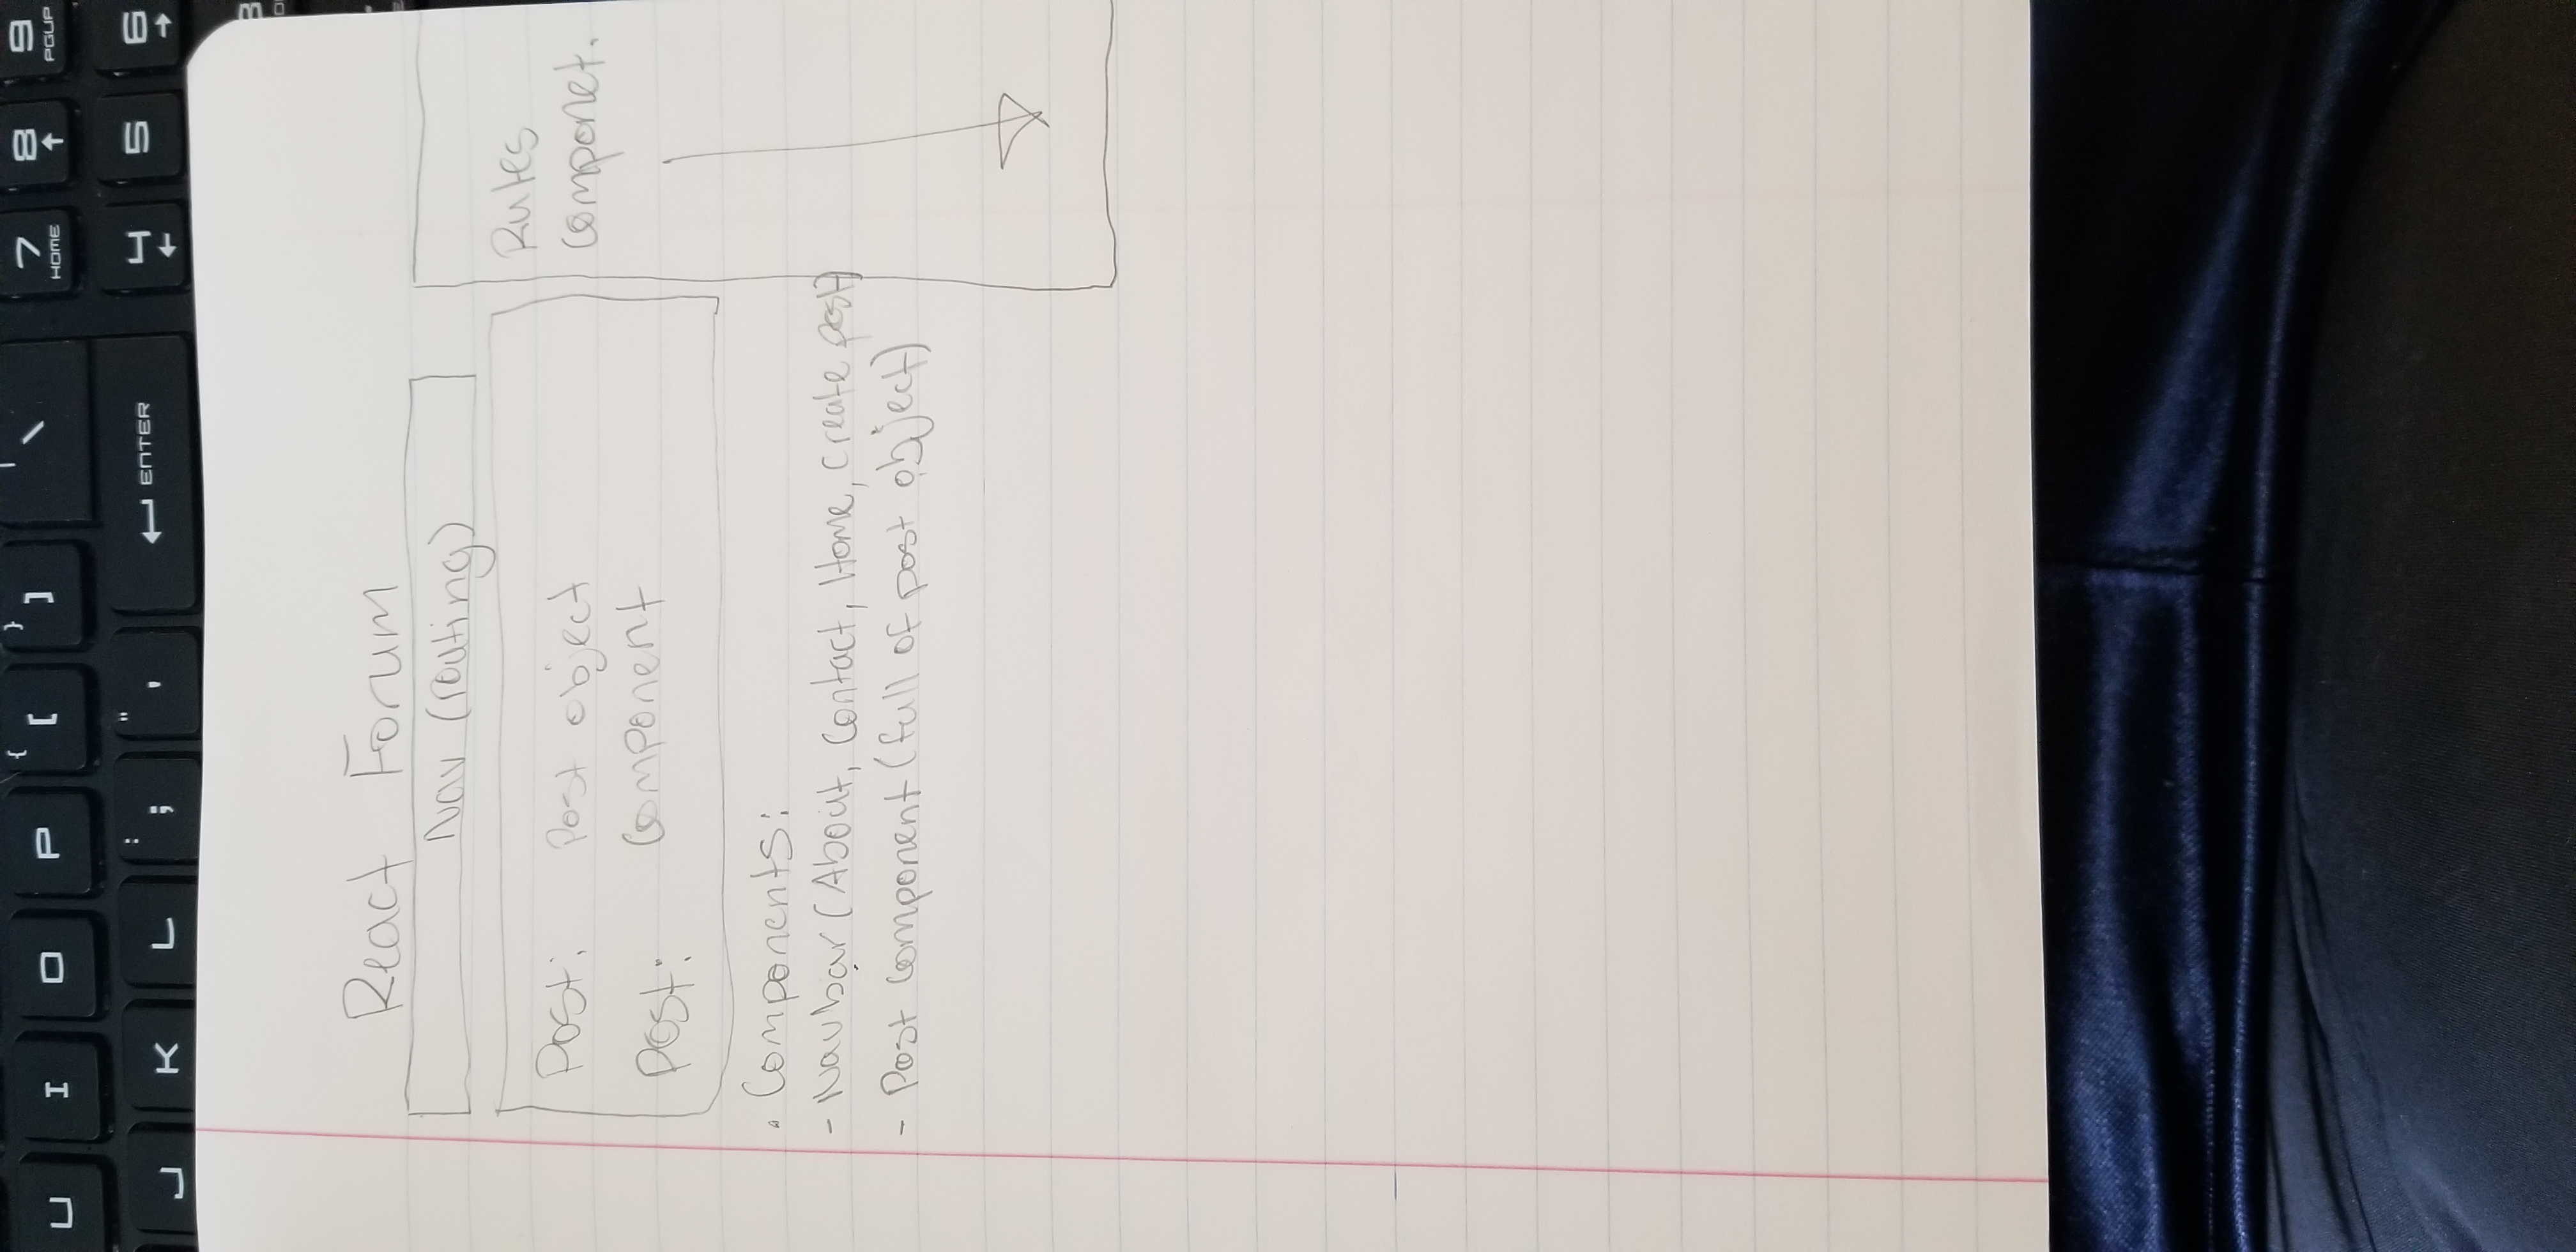 { } |
U I O P [ ] \ 7 8 9
HOME PGUP
: "
J K L ; ' ENTER 4 5 6
React Forum
Nav (routing)
Post: Post object
component
Post:
Rules
componet.
. Components:
- Navbar (About, Contact, Home, Create post)
- Post component (full of post object)